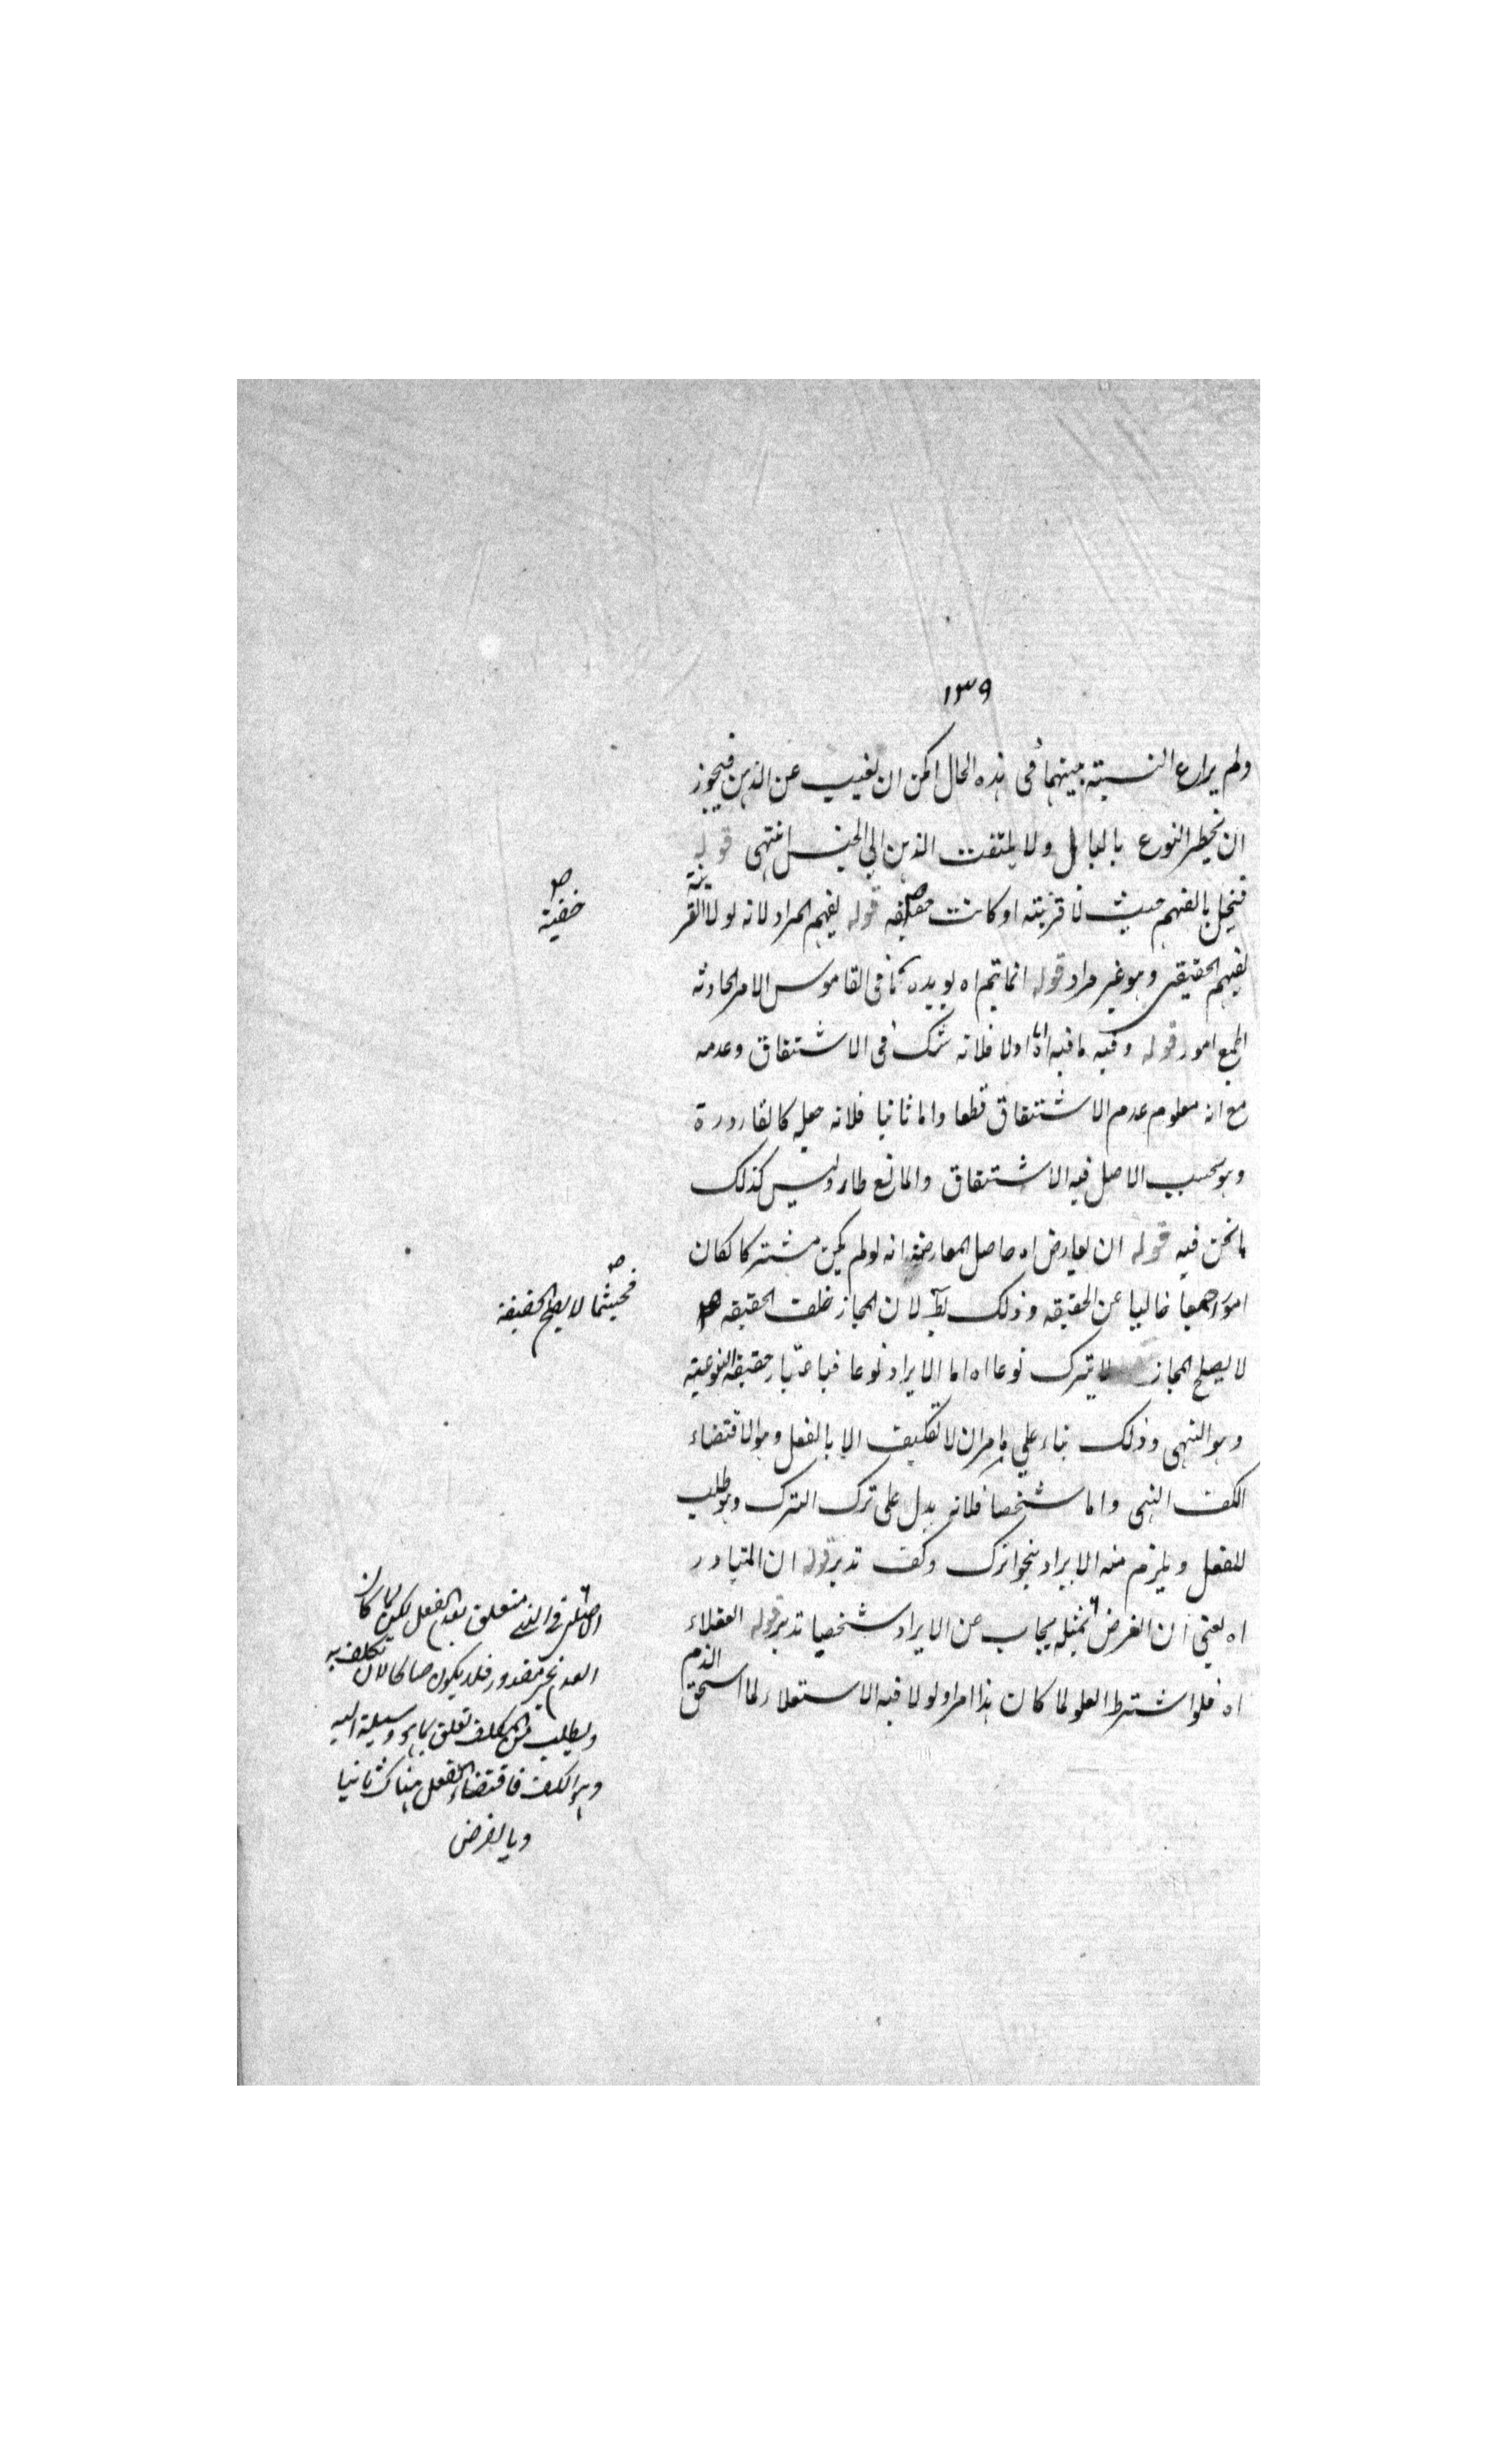 ١٣٩
ولم يراع النسبة بينهما فى هذه الحال امكن ان يغيب عن الذهن فيجوز
ان يخطر النوع بالبال ولا يلتفت الذهن الي الجنس انتهى قوله
فيخل بالفهم حيث لا قرينة او كانت خفية قوله يفهم المراد لانه لولا القرينة
يفهم الحقيقى وهو غير مراد قوله انما يتم اه يويده ما فى القاموس الامر الحادثة
الجمع امور قوله وفيه ما فيه اما اولا فلانه شك فى الاشتقاق وعدمه
مع انه معلوم عدم الاشتقاق قطعا واما ثانيا فلانه جعله كالقارورة
وهو بحسب الاصل فيه الاشتقاق والمانع طار وليس كذلك
ما نحن فيه قوله ان يعارض اه حاصل المعارضة انه لو لم يكن مشتركا لكان
خاليا عن الحقيقه وذلك بط لان المجاز خلف الحقيقه
لا يصلح المجاز لا يترك نوعا اه اما الايراد نوعا فباعتبار حقيقة النوعية
وهو النهى وذلك بناء علي ما مر ان لا تكليف الا بالفعل وهو الاقتضاء
الكف النهى واما شخصا فلانه يدل على ترك الترك وهو طلب
للفعل ويلزم منه الايراد بنحو اترك وكف تدبر قوله ان المتبادر
اه يعنى ان الغرض تمثيله يجاب عن الايراد شخصيا تدبر قوله العقلاء
اه فلو اشترط العلو لما كان هذا امرا ولولا فيه الاستعلاء لما استحق الذم
خفية
فحيثما لا يصلح الحقيقة
فى النهى متعلق بعدم الفعل لكن لما كان
العدم غير مقدور فلا يكون صالحا لان تكلف به
ويطلب من المكلف تعلق بما هو وسيلة اليه
وهو الكف فاقتضاء الفعل هناك ثانيا
وبالعرض